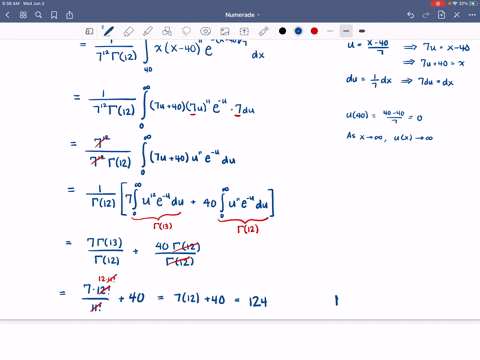 9:38 AM Wed Jun 2
Numerade
= 1/(7¹² Γ(12)) ∫₄₀^∞ x(x-40)¹¹ e^(-(x-40)/7) dx
u = (x-40)/7 ⟹ 7u = x-40
⟹ 7u+40 = x
du = 1/7 dx ⟹ 7du = dx
= 1/(7¹² Γ(12)) ∫₀^∞ (7u+40)(7u)¹¹ e^(-u) · 7du
u(40) = (40-40)/7 = 0
As x→∞, u(x)→∞
= 7¹²/(7¹² Γ(12)) ∫₀^∞ (7u+40) u¹¹ e^(-u) du
= 1/Γ(12) [7∫₀^∞ u¹² e^(-u) du + 40∫₀^∞ u¹¹ e^(-u) du]
Γ(13) Γ(12)
= 7Γ(13)/Γ(12) + 40 Γ(12)/Γ(12)
12·11!
= 7·12!/11! + 40 = 7(12) + 40 = 124